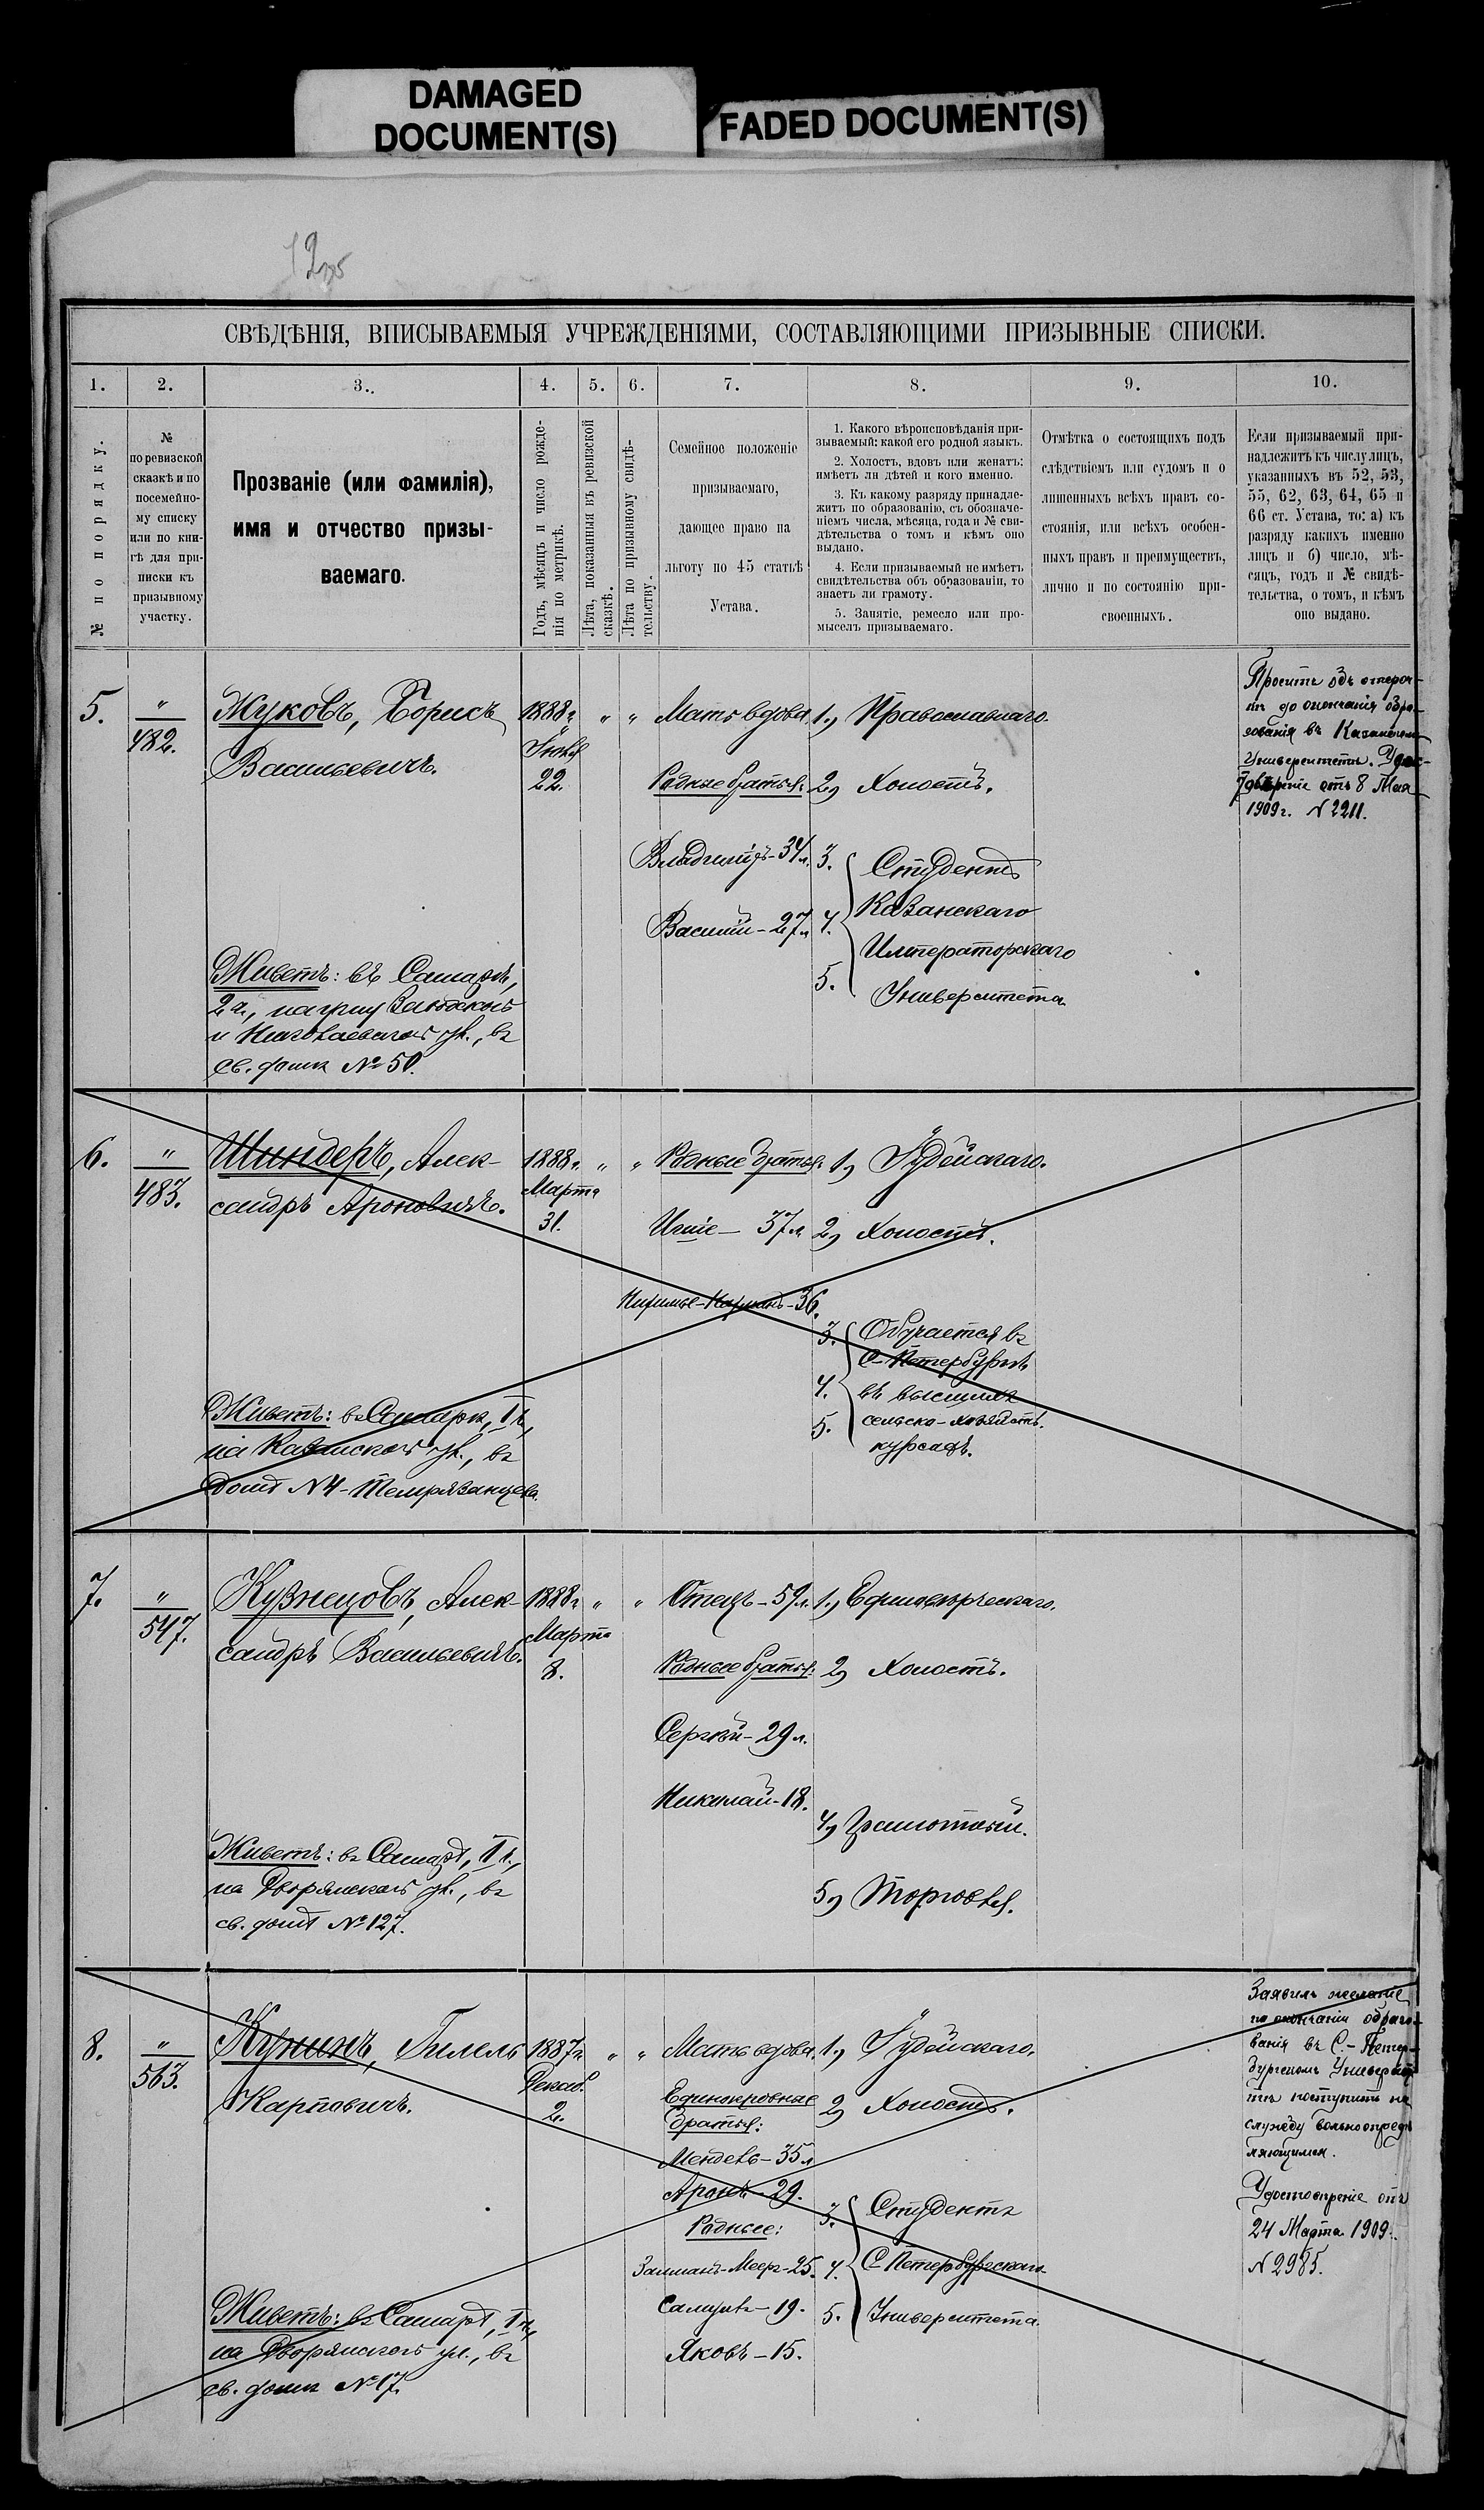 DAMAGED
DOCUMENT(S)
FADED DOCUMENT(S)
СВѢДѢНІЯ, ВПИСЫВАЕМЫЯ УЧРЕЖДЕНІЯМИ, СОСТАВЛЯЮЩИМИ ПРИЗЫВНЫЕ СПИСКИ.
1. 2. 3. 4. 5. 6. 7. 8. 9. 10.
№ по порядку.
№
по ревизской
сказкѣ и по
посемейно-
му списку
или по кни-
гѣ для при-
писки къ
призывному
участку.
Прозваніе (или фамилія),
имя и отчество призы-
ваемаго.
Годъ, мѣсяцъ и число рожде-
нія по метрикѣ.
Лѣта, показанныя въ ревизской
сказкѣ.
Лѣта по призывному свидѣ-
тельству.
Семейное положеніе
призываемаго,
дающее право на
льготу по 45 статьѣ
Устава.
1. Какого вѣроисповѣданія при-
зываемый: какой его родной языкъ.
2. Холостъ, вдовъ или женатъ:
имѣетъ ли дѣтей и кого именно.
3. Къ какому разряду принадле-
житъ по образованію, съ обозначе-
ніемъ числа, мѣсяца, года и № сви-
дѣтельства о томъ и кѣмъ оно
выдано.
4. Если призываемый не имѣетъ
свидѣтельства объ образованіи, то
знаетъ ли грамоту.
5. Занятіе, ремесло или про-
мыселъ призываемаго.
Отмѣтка о состоящихъ подъ
слѣдствіемъ или судомъ и о
лишенныхъ всѣхъ правъ со-
стоянія, или всѣхъ особен-
ныхъ правъ и преимуществъ,
лично и по состоянію при-
своенныхъ.
Если призываемый при-
надлежитъ къ числу лицъ,
указанныхъ въ 52, 53,
55, 62, 63, 64, 65 и
66 ст. Устава, то: а) къ
разряду какихъ именно
лицъ и б) число, мѣ-
сяцъ, годъ и № свидѣ-
тельства, о томъ, и кѣмъ
оно выдано.
5.
"
482.
Жуковъ, Борисъ
Васильевичъ.
Живетъ: въ Самарѣ,
и Николаевской ул., въ
св. домѣ № 50.
1888г.
Іюля
22.
" "
Мать вдова.
Родные братья:
Владиміръ-34л.
Василій-27л.
1, Православнаго.
2, Холостъ.
3. Студентъ
4. Казанскаго
Императорскаго
5. Университета
Проситъ объ отсроч-
кѣ до окончанія обра-
зованія въ Казанскомъ
Университетѣ. Удос-
товѣреніе отъ 8 Мая
1909г. № 2211.
6.
"
483.
Шиндеръ, Алек-
сандръ Ароновичъ.
Живетъ: въ Самарѣ, I ч.,
на Казанской ул., въ
домѣ № 4-Темрязанцева.
1888г.
Марта
31.
" "
Родные братья:
37л.
36.
1, Іудейскаго.
2, Холостъ.
3. Обучается въ
С-Петербургѣ
4. въ высшихъ
5. сельско-хозяйств.
курсахъ.
7.
"
547.
Кузнецовъ, Алек-
сандръ Васильевичъ.
Живетъ: въ Самарѣ, I ч.,
на Дворянской ул., въ
св. домѣ № 127.
1888г.
Марта
8.
" "
Отецъ-59л.
Родные братья:
Сергѣй-29л.
Николай-18.
1, Единовѣрческаго.
2, Холостъ.
4, Грамотный.
5, Торговля.
8.
"
563.
Кунинъ, Гилель
Карповичъ.
Живетъ: въ Самарѣ, I ч.,
на Дворянской ул., въ
св. домѣ № 17.
1887г.
Декаб.
2.
" "
Мать вдова.
Единокровные
братья:
Мендель-35л.
Аронъ-29.
Родные:
Залманъ-Мееръ-25.
Самуилъ-19.
Яковъ-15.
1, Іудейскаго.
2, Холостъ.
3. Студентъ
4. С-Петербургскаго
5. Университета.
Заявилъ желаніе
по окончаніи образо-
ванія въ С.-Петер-
бургскомъ Университе-
тѣ поступить на
службу вольноопредѣ-
ляющимся.
Удостовѣреніе отъ
24 Марта 1909г.
№ 2985.